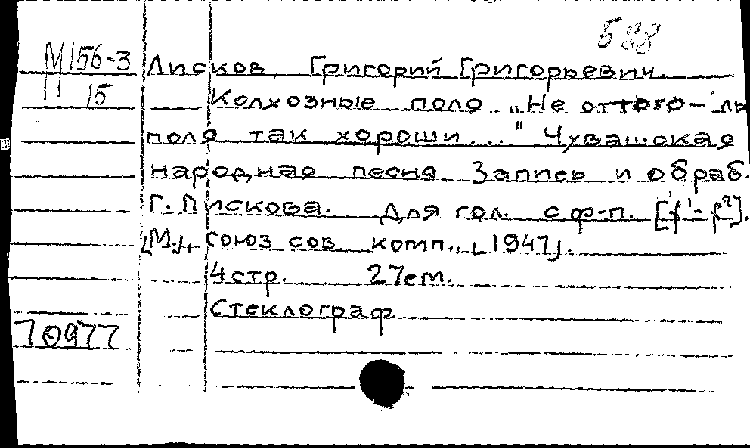 588
М156-3 Лисков, Григорий Григорьевич.
15 Колхозные поля. "Не оттого-ли
поля так хороши..." Чувашская
народная песня. Запись и обраб.
Г. Лискова. Для гол. с ф-п. [f'-f²].
[М.], Союз сов. комп., [1947].
4стр. 27см.
Стеклограф
70977